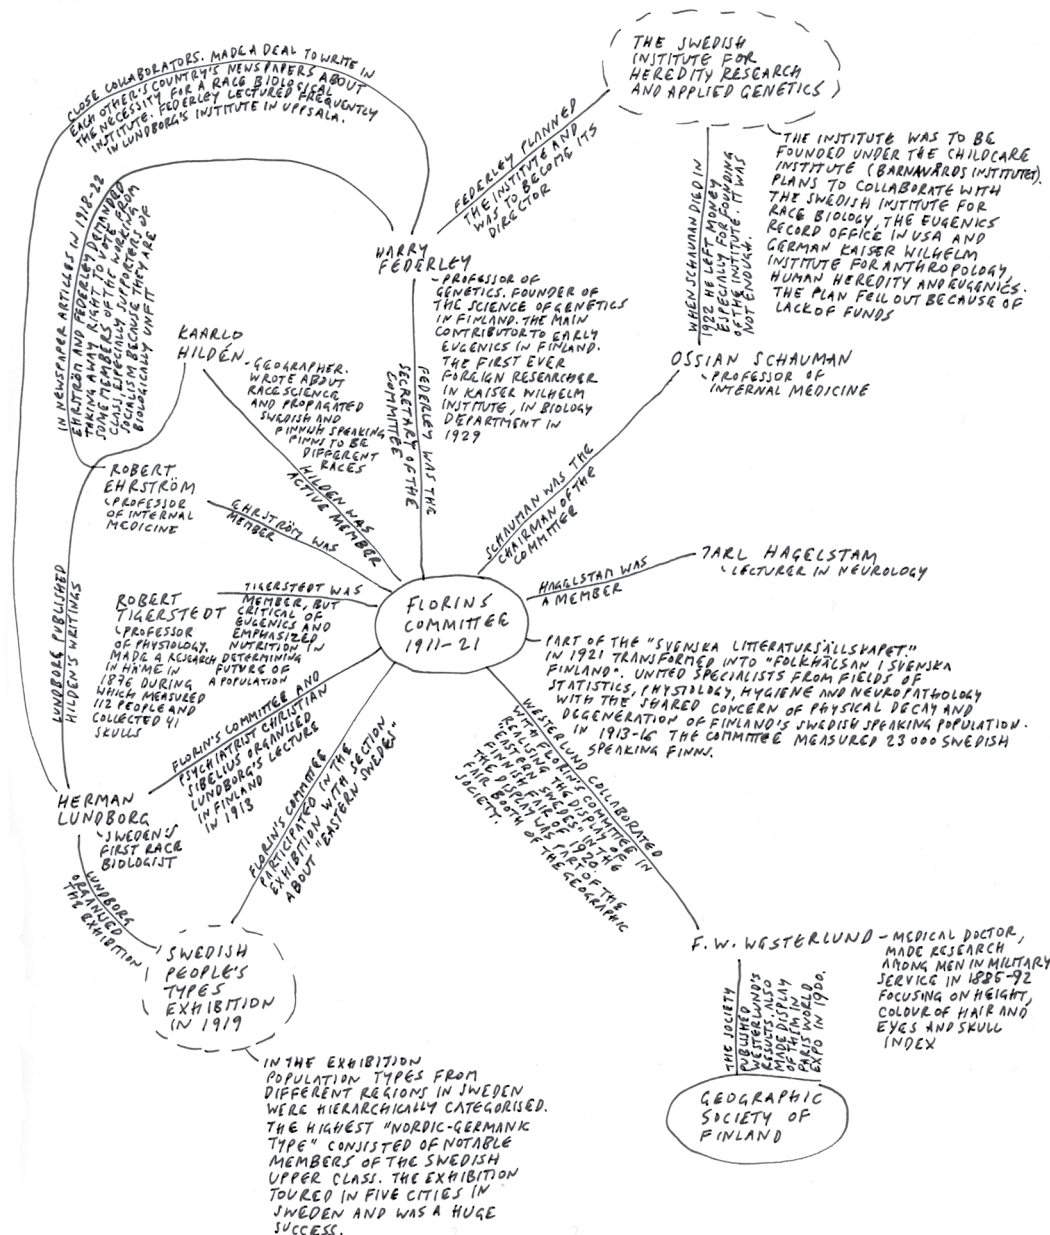 CLOSE COLLABORATORS. MADE A DEAL TO WRITE IN
EACH OTHER'S COUNTRY'S NEWSPAPERS ABOUT
THE NECESSITY FOR A RACE BIOLOGICAL
INSTITUTE. FEDERLEY LECTURED FREQUENTLY
IN LUNDBORG'S INSTITUTE IN UPPSALA.
THE SWEDISH
INSTITUTE FOR
HEREDITY RESEARCH
AND APPLIED GENETICS
FEDERLEY PLANNED
THE INSTITUTE AND
WAS TO BECOME ITS
DIRECTOR
WHEN SCHAUMAN DIED IN
1922 HE LEFT MONEY
ESPECIALLY FOR FOUNDING
OF THE INSTITUTE. IT WAS
NOT ENOUGH.
- THE INSTITUTE WAS TO BE
FOUNDED UNDER THE CHILDCARE
INSTITUTE (BARNAVÅRDSINSTITUTET).
PLANS TO COLLABORATE WITH
THE SWEDISH INSTITUTE FOR
RACE BIOLOGY, THE EUGENICS
RECORD OFFICE IN USA AND
GERMAN KAISER WILHELM
INSTITUTE FOR ANTHROPOLOGY,
HUMAN HEREDITY AND EUGENICS.
THE PLAN FELL OUT BECAUSE OF
LACK OF FUNDS
IN NEWSPAPER ARTICLES IN 1918-22
EHRSTRÖM AND FEDERLEY DEMANDED
TAKING AWAY RIGHT TO VOTE FROM
SOME MEMBERS OF THE WORKING
CLASS, ESPECIALLY SUPPORTERS OF
SOCIALISM BECAUSE THEY ARE
BIOLOGICALLY UNFIT
HARRY
FEDERLEY
- PROFESSOR OF
GENETICS. FOUNDER OF
THE SCIENCE OF GENETICS
IN FINLAND. THE MAIN
CONTRIBUTOR TO EARLY
EUGENICS IN FINLAND.
THE FIRST EVER
FOREIGN RESEARCHER
IN KAISER WILHELM
INSTITUTE, IN BIOLOGY
DEPARTMENT IN
1929
KAARLO
HILDÉN
- GEOGRAPHER.
WROTE ABOUT
RACE SCIENCE
AND PROPAGATED
SWEDISH AND
FINNISH SPEAKING
FINNS TO BE
DIFFERENT
RACES
FEDERLEY WAS THE
SECRETARY OF THE
COMMITTEE
OSSIAN SCHAUMAN
- PROFESSOR OF
INTERNAL MEDICINE
SCHAUMAN WAS THE
CHAIRMAN OF THE
COMMITTEE
HILDEN WAS
ACTIVE MEMBER
ROBERT
EHRSTRÖM
- PROFESSOR
OF INTERNAL
MEDICINE
EHRSTRÖM WAS
MEMBER
JARL HAGELSTAM
- LECTURER IN NEUROLOGY
HAGELSTAM WAS
A MEMBER
LUNDBORG PUBLISHED
HILDEN'S WRITINGS
ROBERT
TIGERSTEDT
- PROFESSOR
OF PHYSIOLOGY.
MADE A RESEARCH
IN HÄME IN
1876 DURING
WHICH MEASURED
112 PEOPLE AND
COLLECTED 41
SKULLS
TIGERSTEDT WAS
MEMBER, BUT
CRITICAL OF
EUGENICS AND
EMPHASIZED
NUTRITION IN
DETERMINING
FUTURE OF
A POPULATION
FLORINS
COMMITTEE
1911-21
- PART OF THE "SVENSKA LITTERATURSÄLLSKAPET."
IN 1921 TRANSFORMED INTO "FOLKHÄLSAN I SVENSKA
FINLAND". UNITED SPECIALISTS FROM FIELDS OF
STATISTICS, PHYSIOLOGY, HYGIENE AND NEUROPATHOLOGY
WITH THE SHARED CONCERN OF PHYSICAL DECAY AND
DEGENERATION OF FINLAND'S SWEDISH SPEAKING POPULATION.
IN 1913-16 THE COMMITTEE MEASURED 23000 SWEDISH
SPEAKING FINNS.
FLORIN'S COMMITTEE AND
PSYCHIATRIST CHRISTIAN
SIBELIUS ORGANISED
LUNDBORG'S LECTURE
IN FINLAND
IN 1913
FLORIN'S COMMITTEE
PARTICIPATED IN THE
EXHIBITION WITH SECTION
ABOUT "EASTERN SWEDES"
WESTERLUND COLLABORATED
WITH FLORIN'S COMMITTEE IN
REALISING THE DISPLAY OF
"EASTERN SWEDES" IN THE
FINNISH FAIR OF 1920.
THE DISPLAY WAS PART OF THE
FAIR BOOTH OF THE GEOGRAPHIC
SOCIETY.
HERMAN
LUNDBORG
- SWEDEN'S
FIRST RACE
BIOLOGIST
LUNDBORG
ORGANISED
THE EXHIBITION
SWEDISH
PEOPLE'S
TYPES
EXHIBITION
IN 1919
- IN THE EXHIBITION
POPULATION TYPES FROM
DIFFERENT REGIONS IN SWEDEN
WERE HIERARCHICALLY CATEGORISED.
THE HIGHEST "NORDIC-GERMANIC
TYPE" CONSISTED OF NOTABLE
MEMBERS OF THE SWEDISH
UPPER CLASS. THE EXHIBITION
TOURED IN FIVE CITIES IN
SWEDEN AND WAS A HUGE
SUCCESS.
F.W. WESTERLUND
- MEDICAL DOCTOR,
MADE RESEARCH
AMONG MEN IN MILITARY
SERVICE IN 1885-92
FOCUSING ON HEIGHT,
COLOUR OF HAIR AND
EYES AND SKULL
INDEX
THE SOCIETY
PUBLISHED
WESTERLUND'S
RESULTS. ALSO
MADE DISPLAY
OF THEM IN
PARIS WORLD
EXPO IN 1900.
GEOGRAPHIC
SOCIETY OF
FINLAND